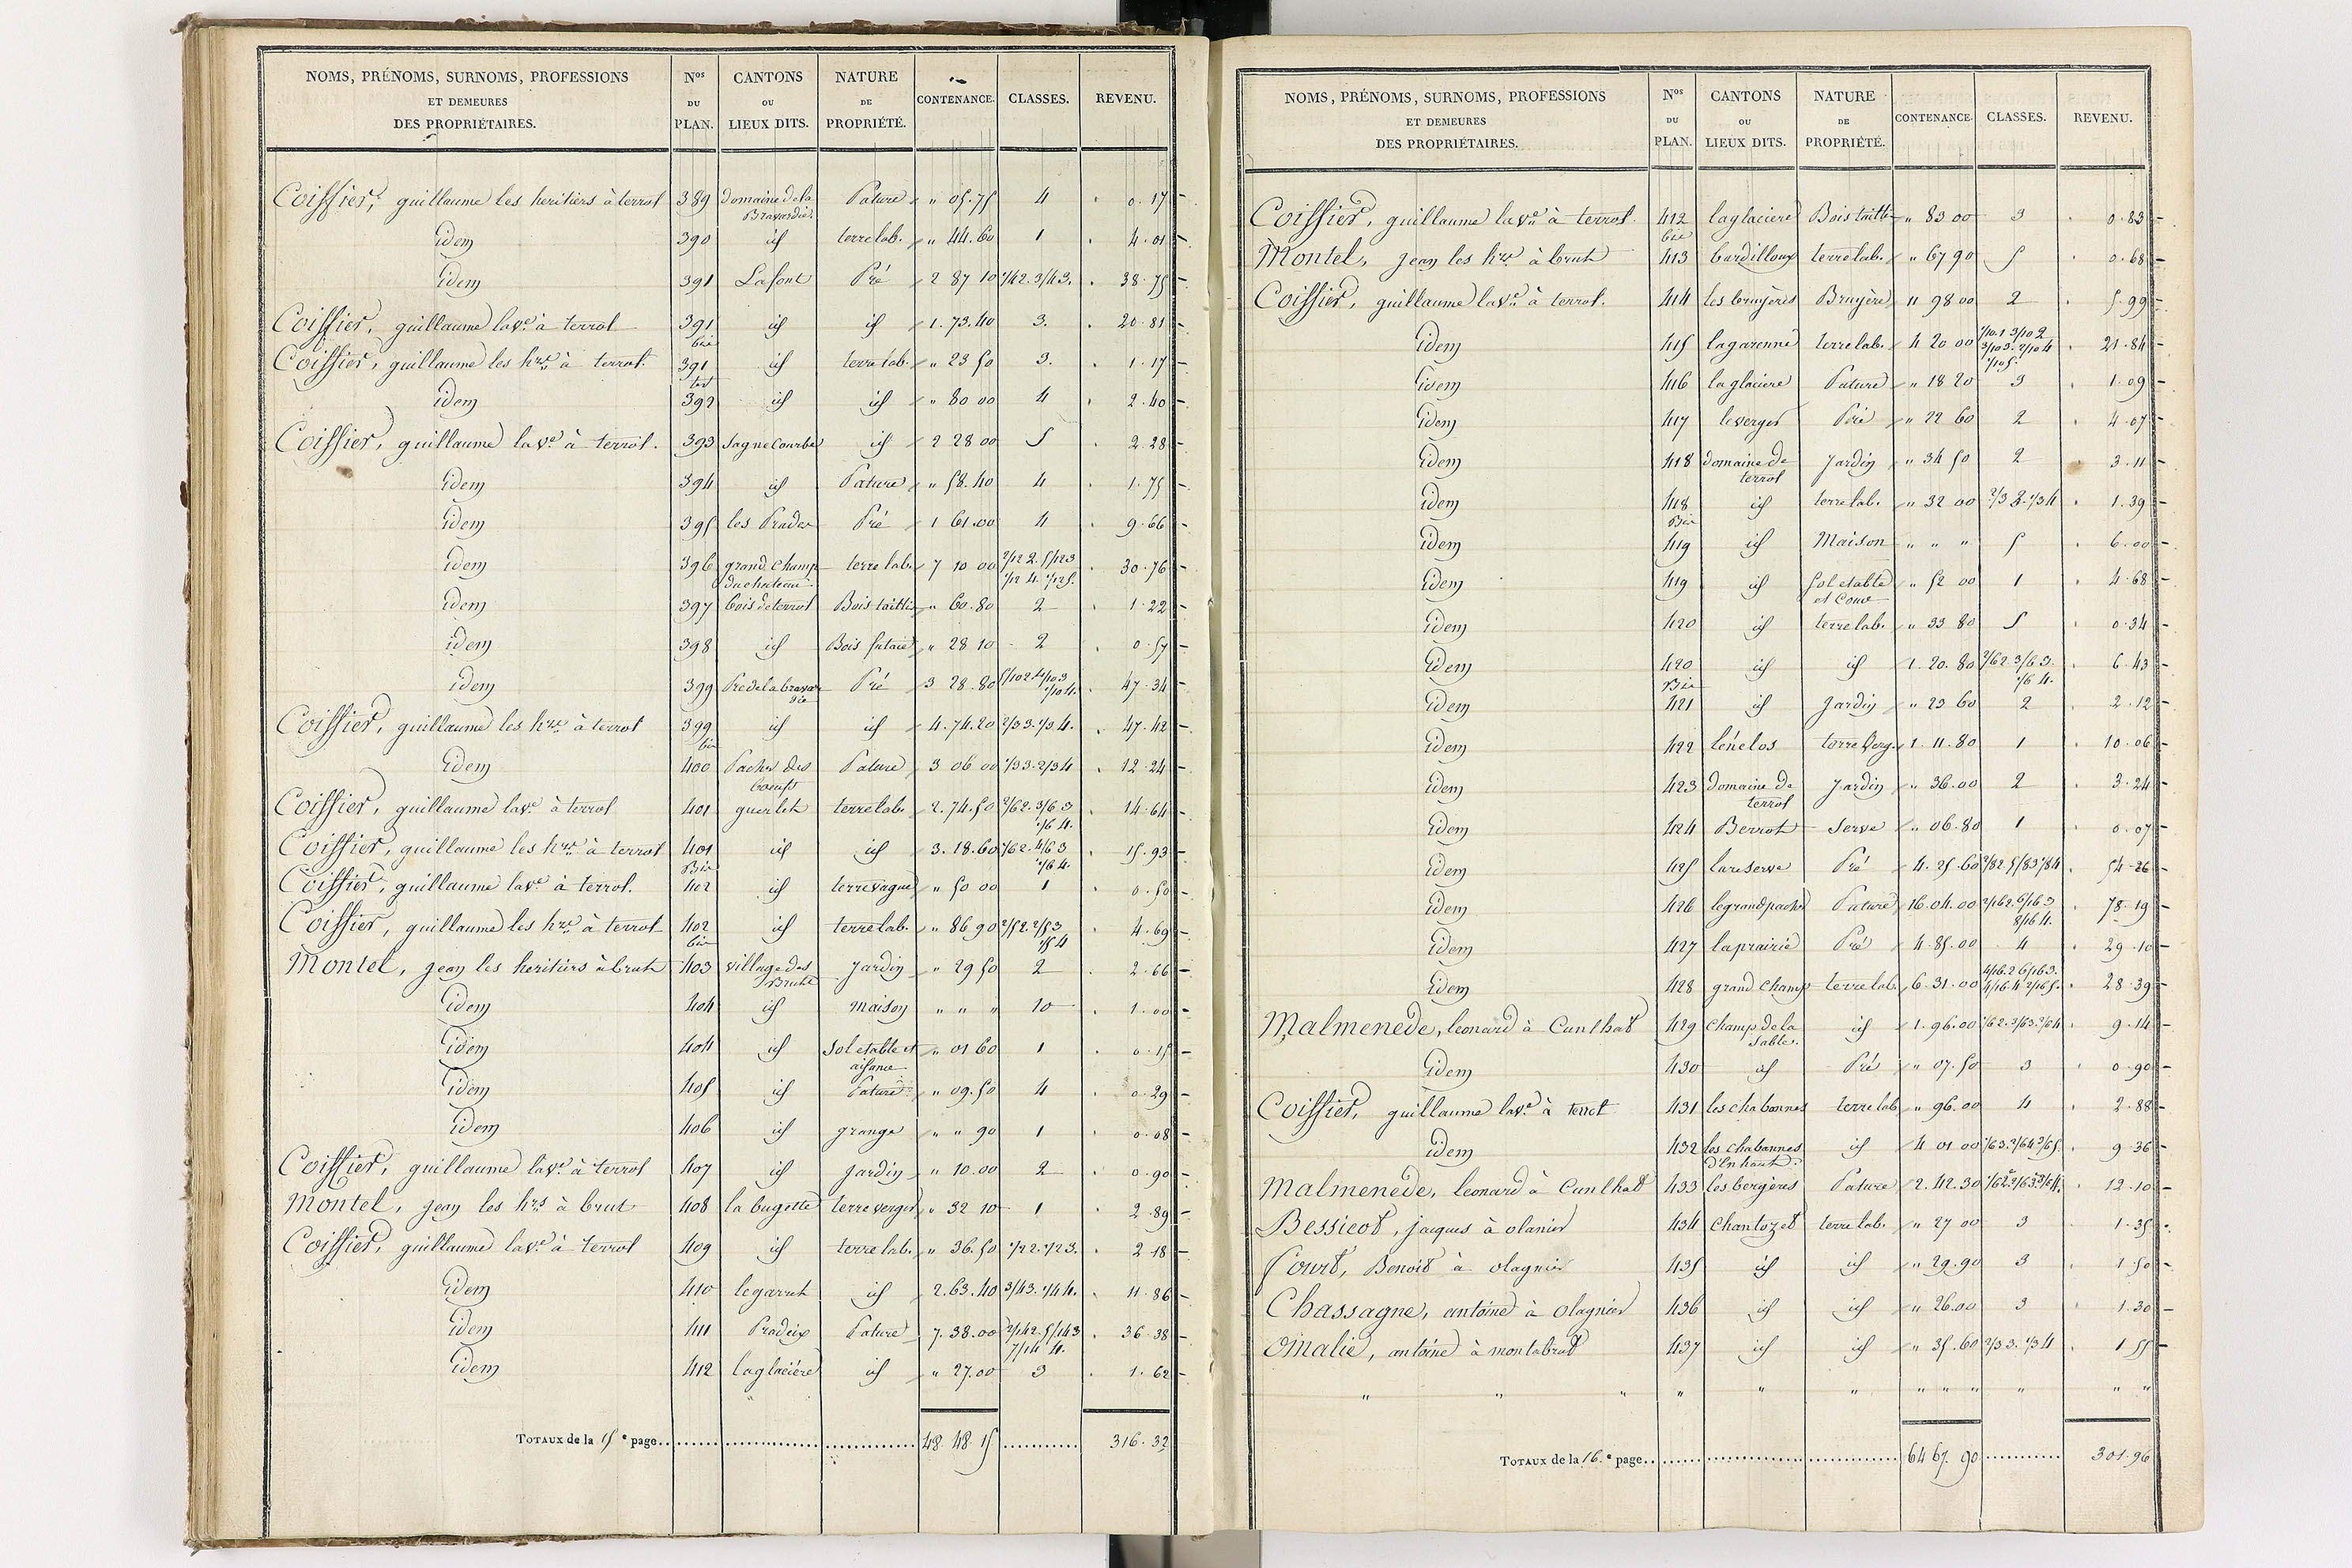 NOMS, PRÉNOMS, SURNOMS, PROFESSIONS ET DEMEURES DES PROPRIÉTAIRES. Nos DU PLAN. CANTONS OU LIEUX DITS. NATURE DE PROPRIÉTÉ. CONTENANCE. CLASSES. REVENU.
Coiffier, guillaume les heritiers à terrot 389 domaine de la Bravardie Pature " 05.75 4 0.17
idem 390 id terre lab. " 44.60 1 4.01
idem 391 Lafont Pré 2 87 10 1/4 2. 3/4 3. 38.75
Coiffier, guillaume la Ve à terrot 391 bis id id 1.73.40 3. 20.81
Coiffier, guillaume les hrs à terrot. 391 ter id terre lab. " 23 50 3. 1.17
idem 392 id id " 80 00 4 2.40
Coiffier, guillaume la Ve à terrot. 393 Sagne Courbe id 2 28 00 5 2.28
idem 394 id Pature " 58.40 4 1.75
idem 395 les Prades Pré 1 61.00 4 9.66
idem 396 grand champ du chateau terre lab. 7 10 00 2/12 2. 5/12 3 4/12 4. 1/12 5. 30.76
idem 397 bois de terrot Bois taillis " 60.80 2 1.22
idem 398 id Bois futaie " 28 10 2 0.57
idem 399 Pré de la bravardie Pré 3 28.80 5/10 2 4/10 3 1/10 4. 47.34
Coiffier, guillaume les hrs à terrot 399 bis id id 4.74.20 2/3 3. 1/3 4. 47.42
idem 400 Pacher des boeufs Pature 3 06 00 1/3 3. 2/3 4 12.24
Coiffier, guillaume la Ve à terrot 401 guerlet terre lab. 2.74.50 2/6 2. 3/6 3 1/6 4. 14.64
Coiffier, guillaume les hrs à terrot 401 Bis id id 3.18.60 1/6 2. 4/6 3 1/6 4. 15.93
Coiffier, guillaume la Ve à terrot. 402 id terre vague " 50 00 1 0.50
Coiffier, guillaume les hrs à terrot 402 bis id terre lab. " 86 90 2/5 2. 2/5 3 1/5 4 4.69
Montel, jean les heritiers à brut 403 village des Bruts Jardin " 29 50 2 2.66
idem 404 id maison " " " 10 1.00
idem 404 id Sol etable et aisance " 01 60 1 0.15
idem 405 id Pature " 09.50 4 0.29
idem 406 id grange " " 90 1 0.08
Coiffier, guillaume la Ve à terrot 407 id Jardin " 10.00 2 0.90
Montel, jean les hrs à brut 408 la bugette terre verger " 32 10 1 2.89
Coiffier, guillaume la Ve à terrot 409 id terre lab. " 36.50 1/2 2. 1/2 3. 2 18
idem 410 le garret id 2.63.40 3/4 3. 1/4 4. 11.86
idem 411 Pradeix Pature 7.38.00 2/14 2. 5/14 3 7/14 4. 36.38
idem 412 la glacière id " 27.00 3 1.62
TOTAUX de la 15e page 48 48 15 316.32
NOMS, PRÉNOMS, SURNOMS, PROFESSIONS ET DEMEURES DES PROPRIÉTAIRES. Nos DU PLAN. CANTONS OU LIEUX DITS. NATURE DE PROPRIÉTÉ. CONTENANCE. CLASSES. REVENU.
Coiffier, guillaume la Ve à terrot. 412 bis la glaciere Bois taillis " 83 00 3 0.83
Montel, jean les hrs à brut 413 bardilloux terre lab. " 67 90 5 0.68
Coiffier, guillaume la Ve à terrot. 414 les bruyères Bruyère 11 98 00 2 5.99
idem 415 la garenne terre lab. 4 20 00 1/10.1 3/10 2 3/10 3. 2/10 4 1/10 5 21.84
idem 416 la glaciere Pature " 18 20 3 1.09
idem 417 le verger Pré " 22 60 2 4.07
idem 418 domaine de terrot Jardin " 34 50 2 3.11
idem 418 Bis id terre lab. " 32 00 2/3 3. 1/3 4 1.39
idem 419 id Maison " " " 5 6.00
idem 419 id Sol etable et Cour " 52 00 1 4.68
idem 420 id terre lab. " 33 80 5 0.34
idem 420 Bis id id 1. 20. 80 2/6 2. 3/6 3. 1/6 4. 6.43
idem 421 id Jardin " 23 60 2 2.12
idem 422 l'énclos terre Verg. 1. 11.80 1 10.06
idem 423 domaine de terrot Jardin " 36.00 2 3.24
idem 424 Berrot Serve " 06.80 1 0.07
idem 425 la reserve Pré 4. 25.60 2/8 2. 5/8 3 1/8 4 54.26
idem 426 le grand pacher Pature 16.04.00 2/16 2. 6/16 3 8/16 4. 78.19
idem 427 la prairie Pré 4.85.00 4 29.10
idem 428 grand champ terre lab. 6.31.00 4/16. 2 6/16 3. 4/16 4 2/16 5. 28.39
Malmenede, leonard à Cunlhat 429 champ de la Sable. id 1.96.00 1/6 2. 3/6 3. 2/6 4 9.14
idem 430 id Pré " 07.50 3 0.90
Coiffier, guillaume la Ve à terrot 431 les chabannes terre lab " 96.00 4 2.88
idem 432 les chabannes d'En haut id 4 01 00 1/6 3. 2/6 4 3/6 5. 9.36
Malmenede, leonard à Cunlhat 433 les bergères Pature 2.42.30 1/6 2. 2/6 3 3/6 4. 12.10
Bessieot, jaques à olanier 434 Chantozet terre lab. " 27 00 3 1.35
Court, Benoit à olagnier 435 id id " 29.90 3 1 50
Chassagne, antoine à olagnier 436 id id " 26.00 3 1.30
Omalie, antoine à montabrut 437 id id " 35.60 2/3 3. 1/3 4 1 55
" " " " " " " " " " " "
TOTAUX de la 16e page 64 67. 90 301.96